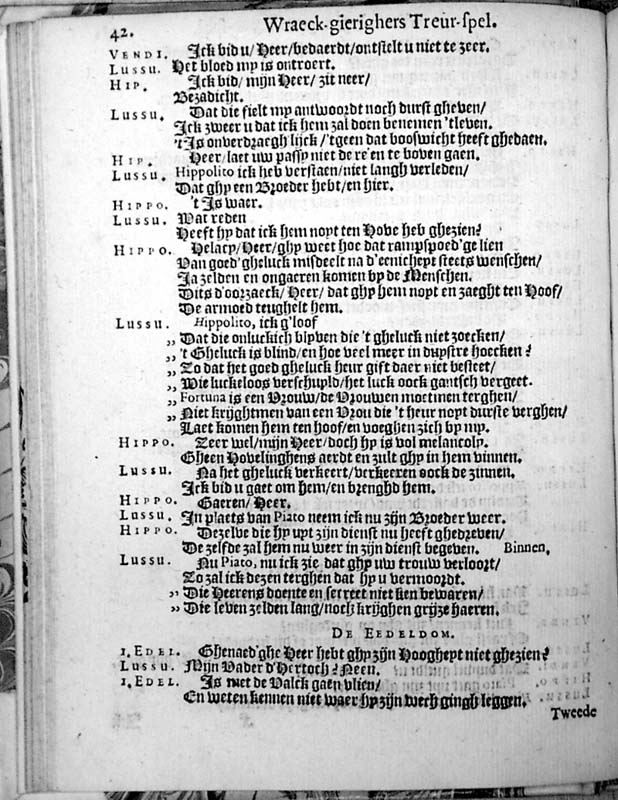 42. Wraeck-gierighers Treur-spel.
VENDI. Ick bid u/ Heer/bedaerdt/ontstelt u niet te zeer.
LUSSU. Het bloed my is ontroert.
HIP. Ick bid/ mijn Heer/ zit neer/
Bezadicht.
LUSSU. Dat die fielt my antwoordt noch durst gheven/
Ick zweer u dat ick hem zal doen benemen 'tleven.
't Is onverdraegh lijck/ 'tgeen dat booswicht heeft ghedaen.
HIP. Heer/laet uw passy niet de re'en te boven gaen.
LUSSU. Hippolito ick heb verstaen/niet langh verleden/
Dat ghy een Broeder hebt/en hier.
HIPPO. 't Is waer.
LUSSU. Wat reden
Heeft hy dat ick hem noyt ten Hove heb ghezien?
HIPPO. Helacy/Heer/ghy weet hoe dat rampspoed'ge lien
Van goed' gheluck misdeelt na d'eenicheyt steets wenschen/
Ja zelden en ongaeren komen by de Menschen.
Dits d'oorzaeck/ Heer/ dat ghy hem noyt en zaeght ten Hoof/
De armoed teughelt hem.
LUSSU. Hippolito, ick g'loof
„ Dat die onluckich blyven die 't gheluck niet zoecken/
„ 't Gheluck is blind/en hoe veel meer in duystre hoecken?
„ Zo dat het goed gheluck heur gift daer niet besteet/
„ Wie luckeloos verschuyld/het luck oock gantsch vergeet.
„ Fortuna is een Vrouw/de Vrouwen moetmen terghen/
„ Niet krijghtmen van een Vrou die 't heur noyt durste verghen/
Laet komen hem ten hoof/en voeghen zich by my.
HIPPO. Zeer wel/mijn Heer/doch hy is vol melancoly.
Gheen Hovelinghens aerdt en zult ghy in hem vinnen.
LUSSU. Na het gheluck verkeert/verkeeren oock de zinnen.
Ick bid u gaet om hem/en brenghd hem.
HIPPO. Gaeren/ Heer.
LUSSU. In plaets van Piato neem ick nu zijn Broeder weer.
HIPPO. Dezelve die hy uyt zijn dienst nu heeft ghedreven/
De zelfde zal hem nu weer in zijn dienst begeven. Binnen.
LUSSU. Nu Piato, nu ick zie dat ghy uw trouw verloort/
Zo zal ick dezen terghen dat hy u vermoordt.
„ Die Heerens doente en secreet niet ken bewaren/
„ Die leven zelden lang/noch krijghen grijze haeren.
DE EEDELDOM.
1. EDEL. Ghenaed'ghe Heer hebt ghy zijn Hoogheyt niet ghezien?
LUSSU. Mijn Vader d'Hertoch? Neen.
1. EDEL. Is met de Valck gaen vlien/
En weten kennen niet waer hy zijn wech gingh leggen.
Tweede